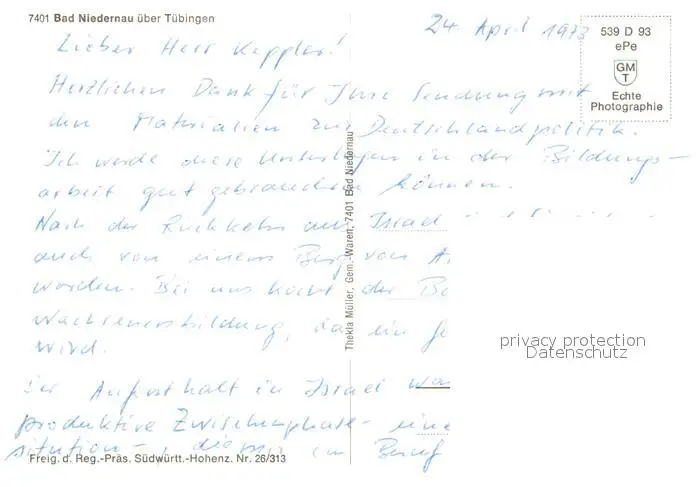 7401 Bad Niedernau über Tübingen
24. April 1973
539 D 93
ePe
GM
T
Echte
Photographie
Lieber Herr Keppler!
Herzlichen Dank für Ihre Sendung mit
den Materialien zur Deutschlandpolitik.
Ich werde diese Unterlagen in der Bildungs-
arbeit gut gebrauchen können.
Nach der Rückkehr aus Israel
auch von einem Berg von
worden. Bei uns der
wachsenenbildung, da ein
wird.
Der Aufenthalt in Israel wa
produktive Zwischenphase - eine
situation -, die mir im Beruf
Thekla Müller, Gem.-Waren, 7401 Bad Niedernau
privacy protection
Datenschutz
Freig. d. Reg.-Präs. Südwürtt.-Hohenz. Nr. 26/313